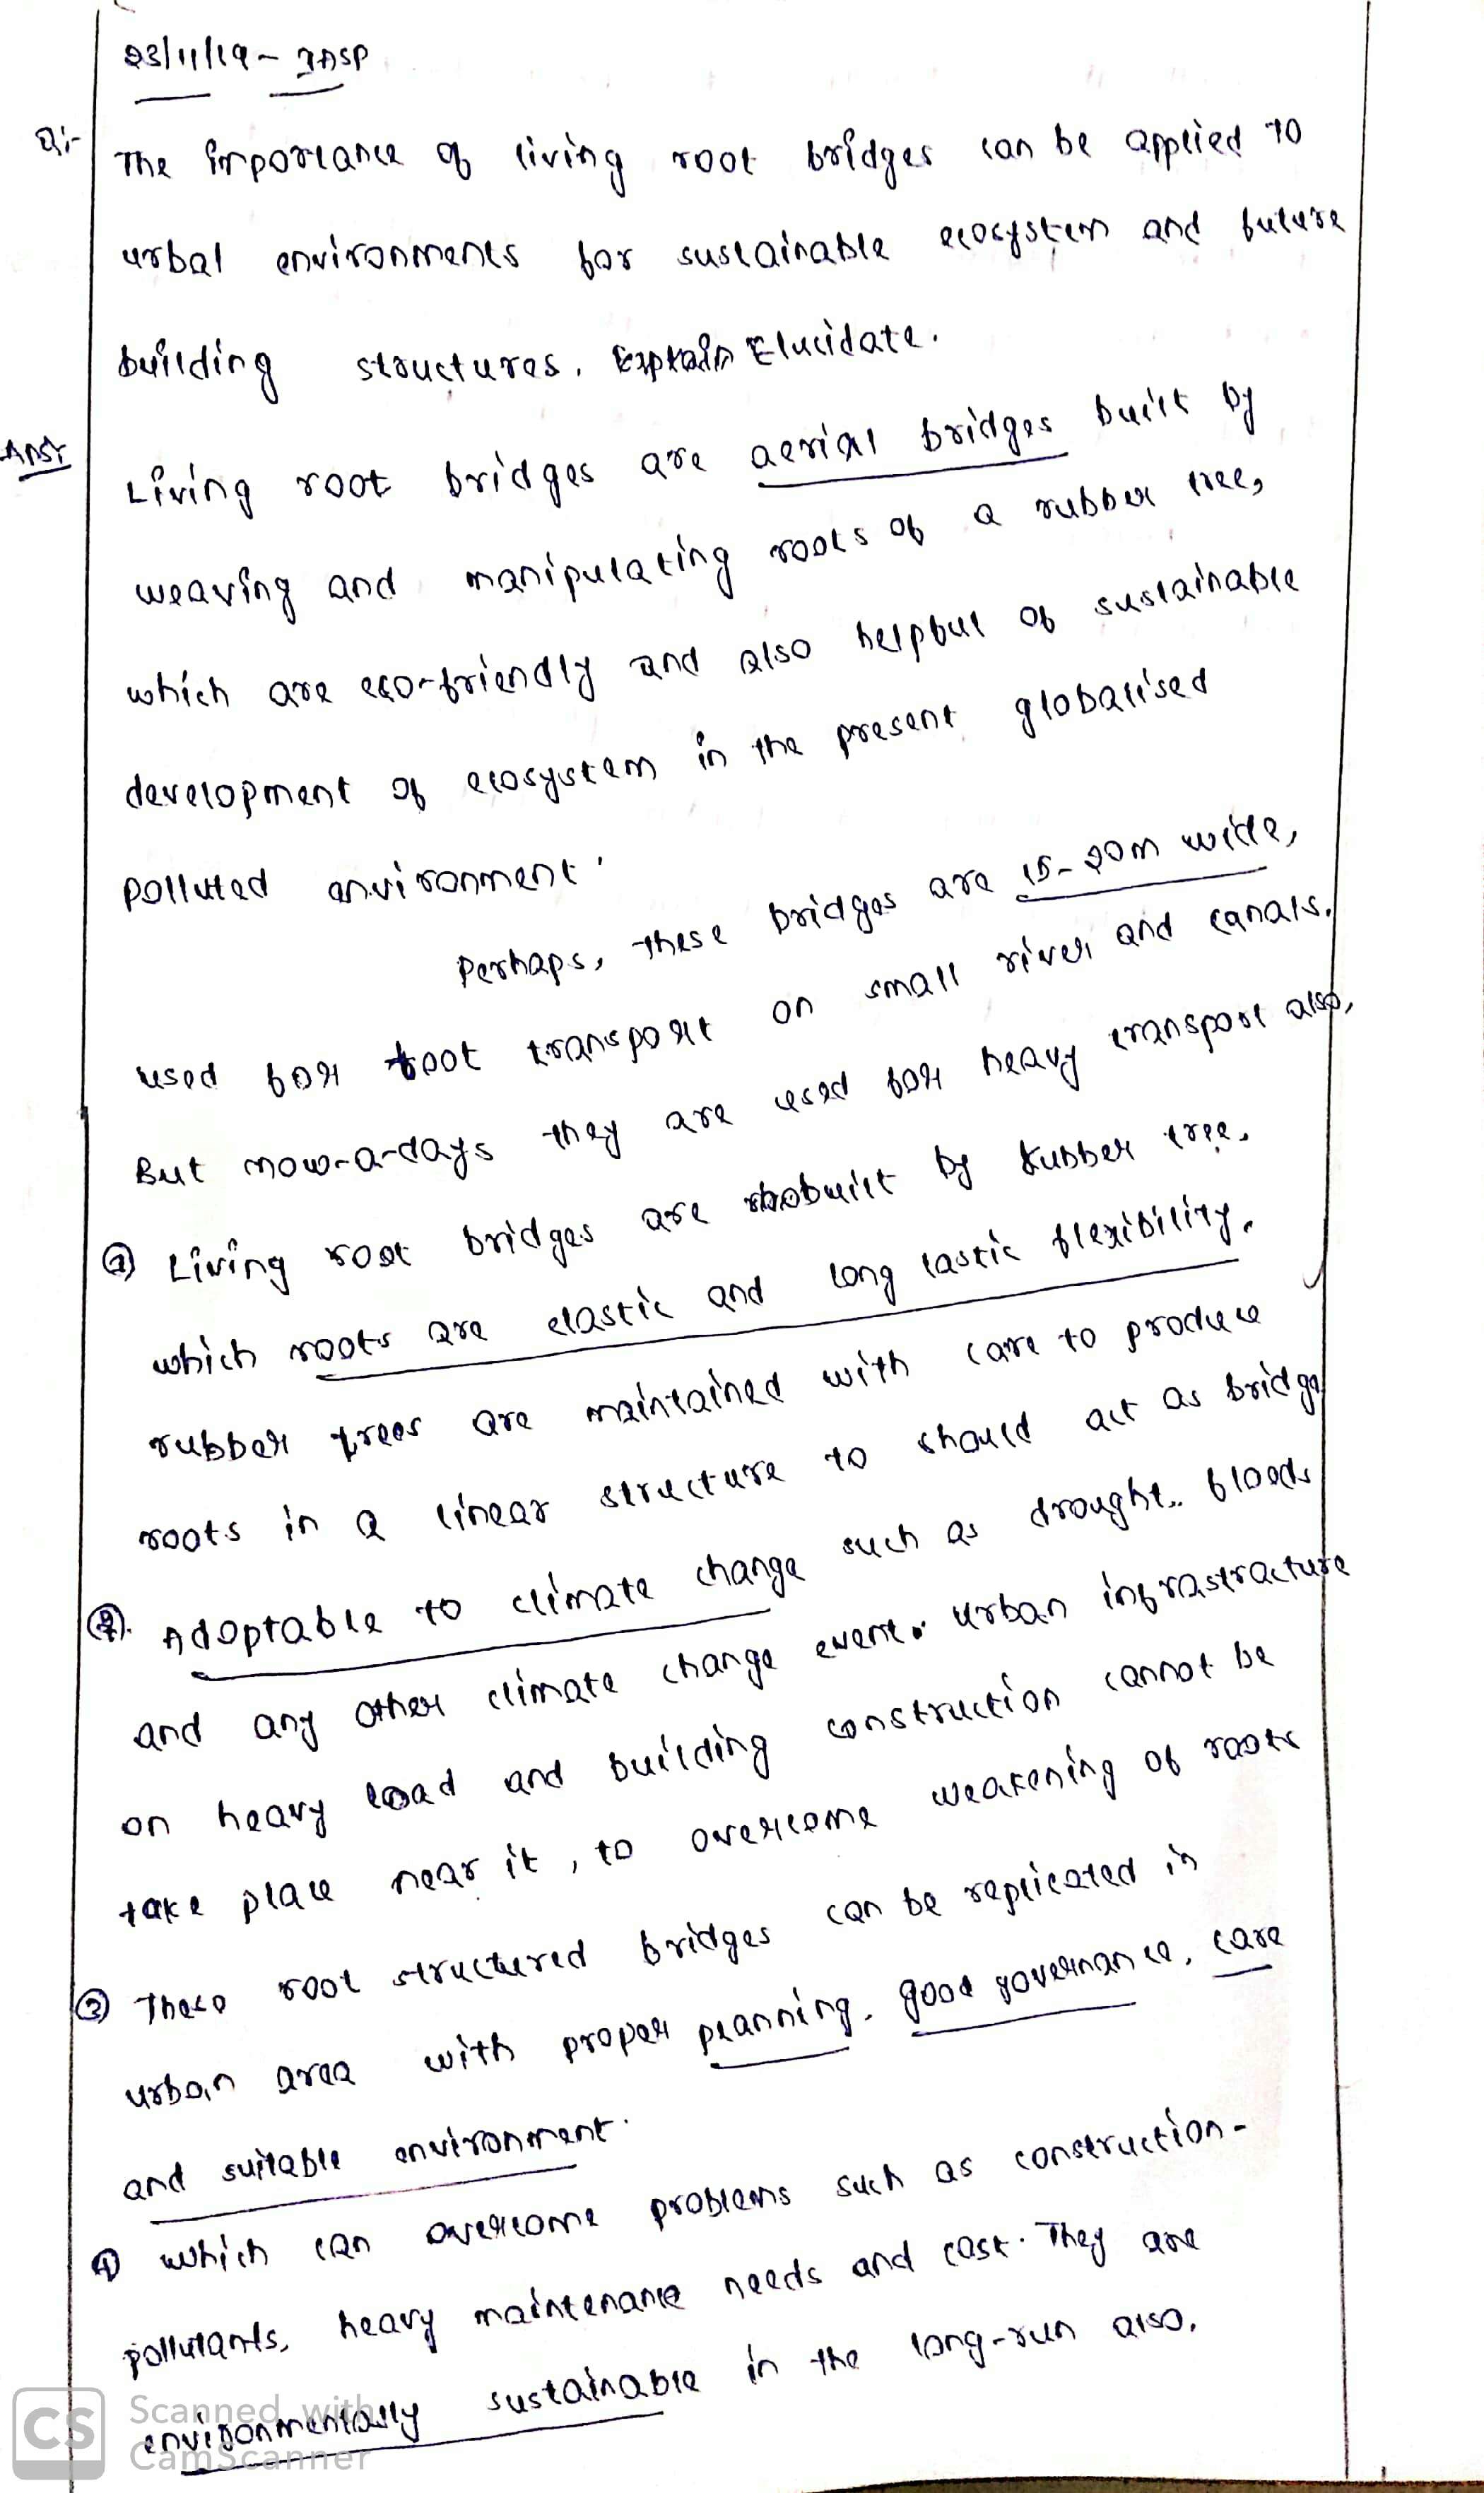 23/11/19 - IASP
Q:- The importance of living root bridges can be applied to
urbal environments for sustainable ecosystem and future
building structures. Explain Elucidate.
Ans:- Living root bridges are aerial bridges built by
weaving and manipulating roots of a rubber tree,
which are eco-friendly and also helpful of sustainable
development of ecosystem in the present globalised
polluted environment.
Perhaps, these bridges are 15-20m wide,
used for foot transport on small river and canals.
But now-a-days they are used for heavy transport also,
① Living root bridges are built by rubber tree.
which roots are elastic and long lastic flexibility.
rubber trees are maintained with care to produce
roots in a linear structure to should act as bridge
②. Adoptable to climate change such as drought.. floods
and any other climate change event. urban infrastracture
on heavy load and building construction cannot be
take place near it, to overcome weakening of roots
③ These root structured bridges can be replicated in
urban area with proper planning, good governance, care
and suitable environment.
④ which can overcome problems such as construction-
pollutants, heavy maintenance needs and cost. They are
environmentally sustainable in the long-run also.
CS Scanned with
CamScanner